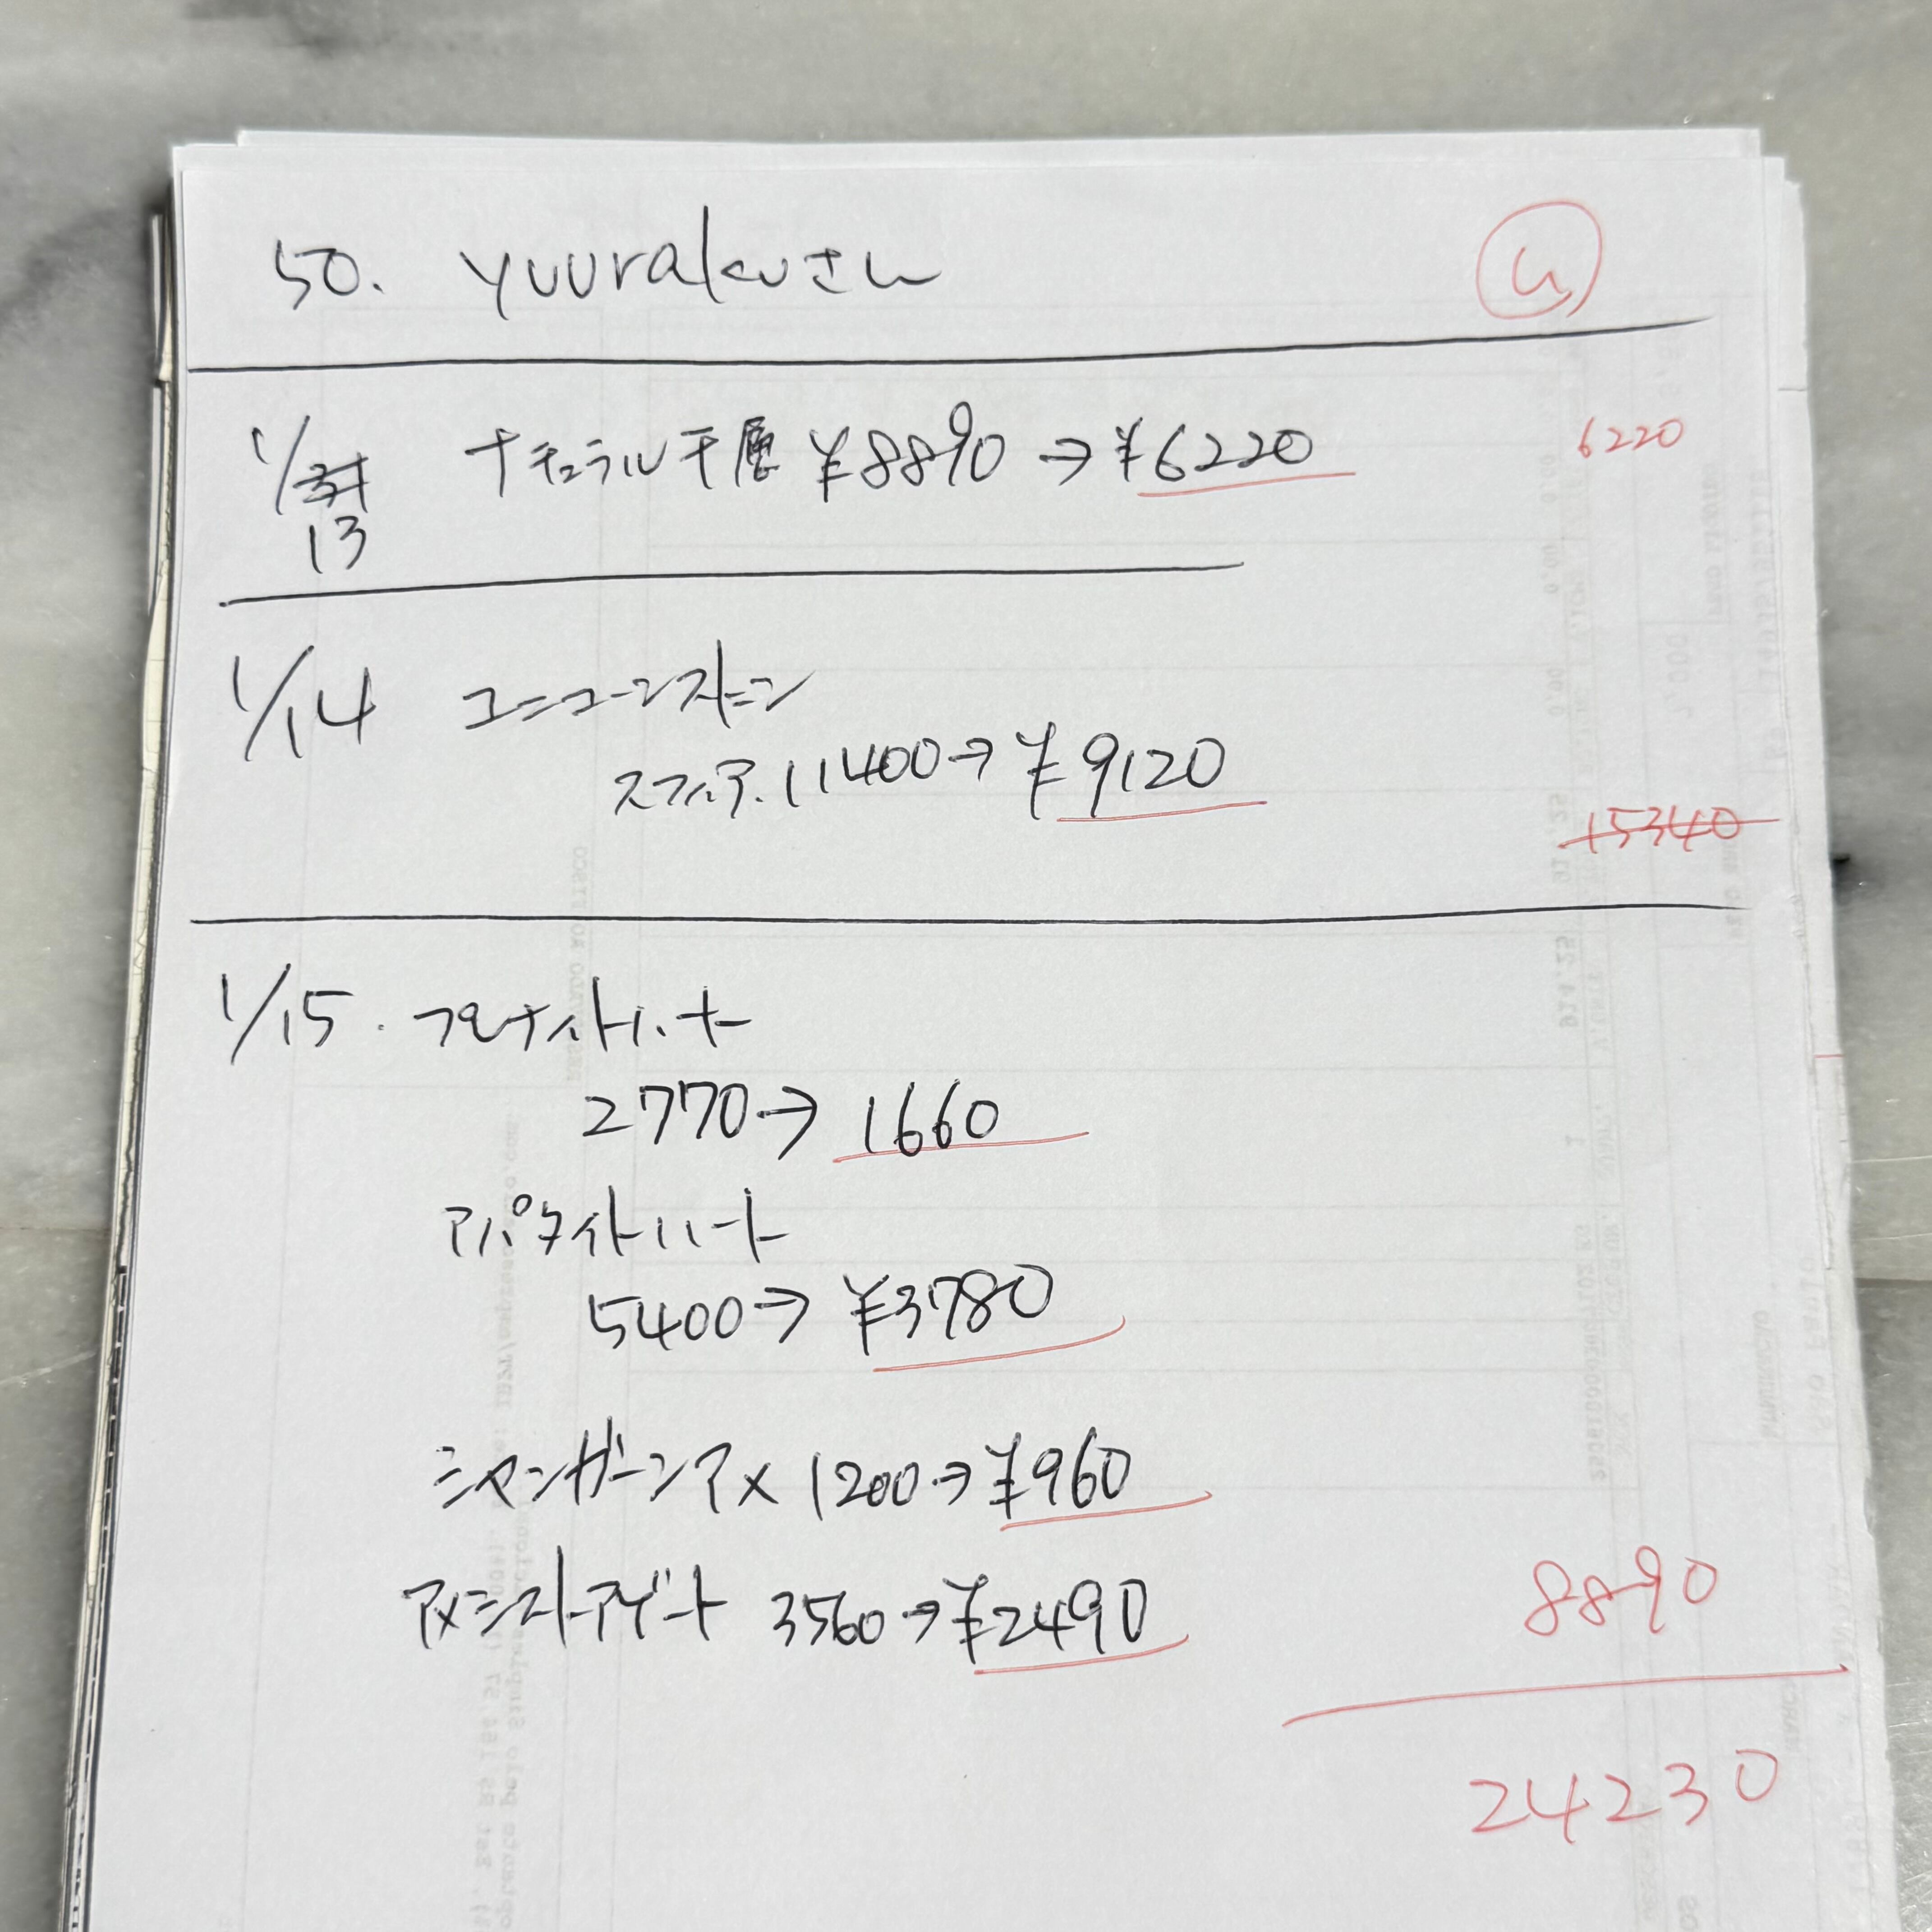 50. yuurakuさん
1/13 ナチュラル千層 ¥8890→¥6220 6220
1/14 ユニコーンストーン
スフィア. 11400→¥9120
15340
1/15. プレナイトハート
2770→ 1660
アパタイトハート
5400→ ¥3780
シャンガーンアメ 1200→¥960
アメシストアゲート 3560→¥2490
8890
24230